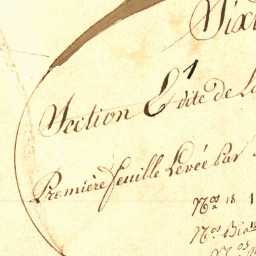 Section E 1 dite de L
Première feuille Levée par
N.os 18 1
N.os